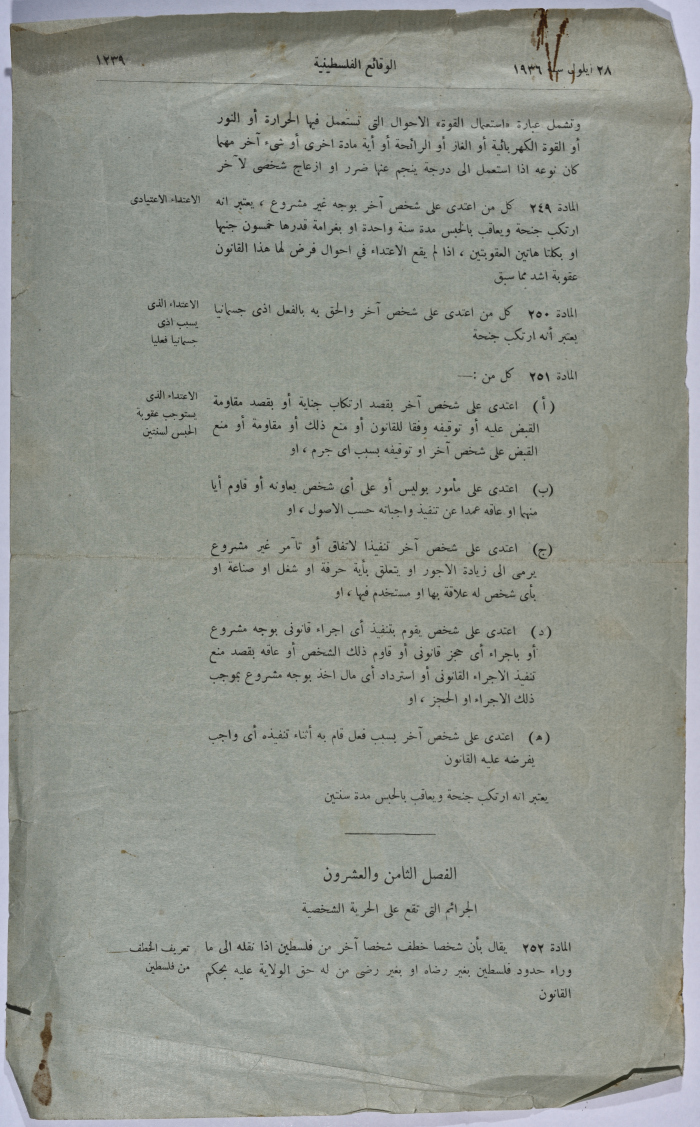 ٢٨ ايلول سنة ١٩٣٦
الوقائع الفلسطينية
١٢٣٩
وتشمل عبارة «استعمال القوة» الاحوال التى تستعمل فيها الحرارة أو النور
أو القوة الكهربائية أو الغاز أو الرائحة أو أية مادة اخرى أو شىء آخر مهما
كان نوعه اذا استعمل الى درجة ينجم عنها ضرر او ازعاج شخصى لآخر
المادة ٢٤٩ كل من اعتدى على شخص آخر بوجه غير مشروع ، يعتبر انه
ارتكب جنحة ويعاقب بالحبس مدة سنة واحدة او بغرامة قدرها خمسون جنيها
او بكلتا هاتين العقوبتين ، اذا لم يقع الاعتداء في احوال فرض لها هذا القانون
عقوبة اشد مما سبق
الاعتداء الاعتيادى
المادة ٢٥٠ كل من اعتدى على شخص آخر والحق به بالفعل اذى جسمانيا
يعتبر أنه ارتكب جنحة
الاعتداء الذى
يسبب اذى
جسمانيا فعليا
المادة ٢٥١ كل من :—
الاعتداء الذى
يستوجب عقوبة
الحبس لسنتين
(أ) اعتدى على شخص آخر بقصد ارتكاب جناية أو بقصد مقاومة
القبض عليه أو توقيفه وفقا للقانون أو منع ذلك أو مقاومة أو منع
القبض على شخص آخر او توقيفه بسبب اى جرم ، او
(ب) اعتدى على مأمور بوليس أو على أى شخص يعاونه أو قاوم أيا
منهما او عاقه عمدا عن تنفيذ واجباته حسب الاصول ، او
(ج) اعتدى على شخص آخر تنفيذا لاتفاق أو تآمر غير مشروع
يرمى الى زيادة الاجور او يتعلق بأية حرفة او شغل او صناعة او
بأى شخص له علاقة بها او مستخدم فيها ، او
(د) اعتدى على شخص يقوم بتنفيذ أى اجراء قانونى بوجه مشروع
أو باجراء أى حجز قانونى أو قاوم ذلك الشخص أو عاقه بقصد منع
تنفيذ الاجراء القانونى أو استرداد أى مال اخذ بوجه مشروع بموجب
ذلك الاجراء او الحجز ، او
(ه) اعتدى على شخص آخر بسبب فعل قام به أثناء تنفيذه أى واجب
يفرضه عليه القانون
يعتبر انه ارتكب جنحة ويعاقب بالحبس مدة سنتين
الفصل الثامن والعشرون
الجرائم التى تقع على الحرية الشخصية
المادة ٢٥٢ يقال بأن شخصا خطف شخصا آخر من فلسطين اذا نقله الى ما
وراء حدود فلسطين بغير رضاه او بغير رضى من له حق الولاية عليه بحكم
القانون
تعريف الخطف
من فلسطين